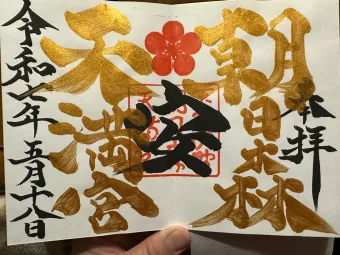 奉拝
朝日森
天満宮
令和七年五月十八日